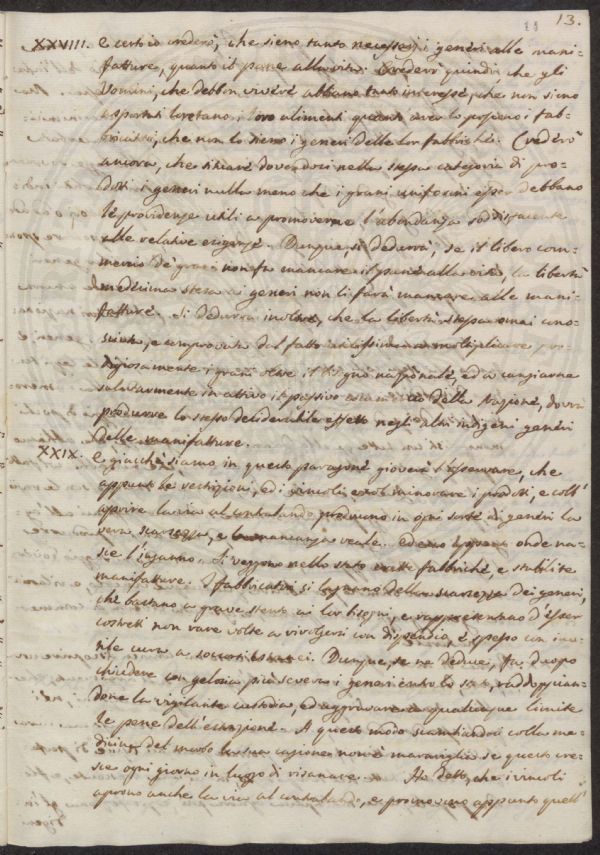 13.
XXVIII. E certo io crederò, che sieno tanto necessarj i generi alle mani-
fatture, quanto il pane alla vita. Crederò quindi che gli
Uomini, che debbon vivere abbiano tanto interesse, che non sieno
asportati loro alimenti quanto aver lo possono i fab-
bricatori, che non lo sieno i generi delle lor fabbriche. Crederò
ancora, che dovendosi nella stessa categoria di pro-
dotti i generi nulla meno che i grani uniformi esser debbano
le providenze utili a promoverne l'abondanza soddisfacente
alle relative esigenze. Dunque, si dedurrà, se il libero com-
mercio de' grani non fa mancare il pane alla vita, la libertà
medesima stesa ai generi non li farà mancare alle mani-
fatture. Si dedurrà inoltre, che la libertà stessa omai cono-
sciuta, e comprovata dal fatto utilissima a moltiplicare pro-
digiosamente i grani oltre il bisogno nazionale, ed a cangiarne
salutarmente in attivo il passivo della Nazione, dovrà
produrre lo stesso desiderabile effetto negli altri indigeni generi
delle manifatture.
XXIX. E giacchè siamo in questo paragone gioverà l'osservare, che
appunto le restrizioni, ed i vincoli, col minorare i prodotti, e coll'
aprire la via al contrabando producono in ogni sorte di generi la
vera scarsezza, e la mancanza reale. Ed ecco onde na-
sce l'inganno. Si veggono nello stato erette fabbriche, e stabilite
manifatture. I fabbricatori si lagnano della scarsezza dei generi,
che bastano a grave stento ai lor bisogni, e rappresentano d'esser
costretti non rare volte a rivolgersi con dispendio, e spesso con inu-
tile cura a soccorsi stranieri. Dunque, se ne deduce, fa d'uopo
chiudere con gelosia più severa i generi entro lo stato, raddoppian-
done la vigilante custodia, ed aggravare a qualunque limite
le pene dell'estrazione. A questo modo scambiandosi colla me-
dicina del morbo la sua cagione non è maraviglia se questo cre-
sce ogni giorno in luogo di risanare. Ho detto, che i vincoli
aprono anche la via al contrabando, e promovono appunto quell'